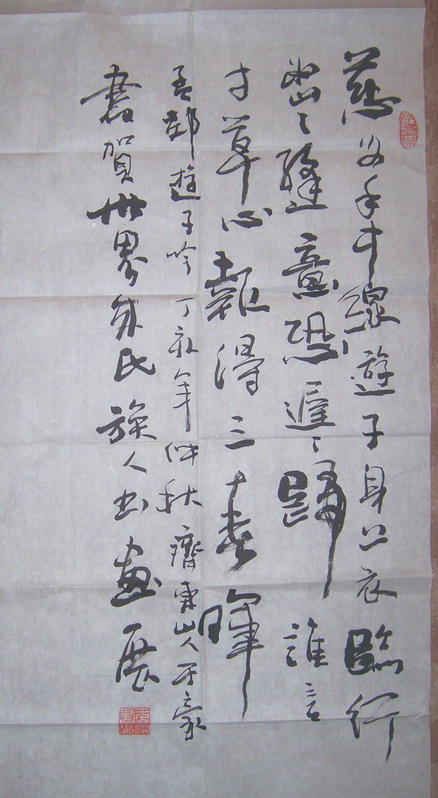 慈母手中線遊子身上衣臨行
密々縫意恐遲々歸誰言
寸草心報得三春暉
孟郊遊子吟 丁亥年仲秀 齊東山人于豪
書賀世界氏族人书畫展